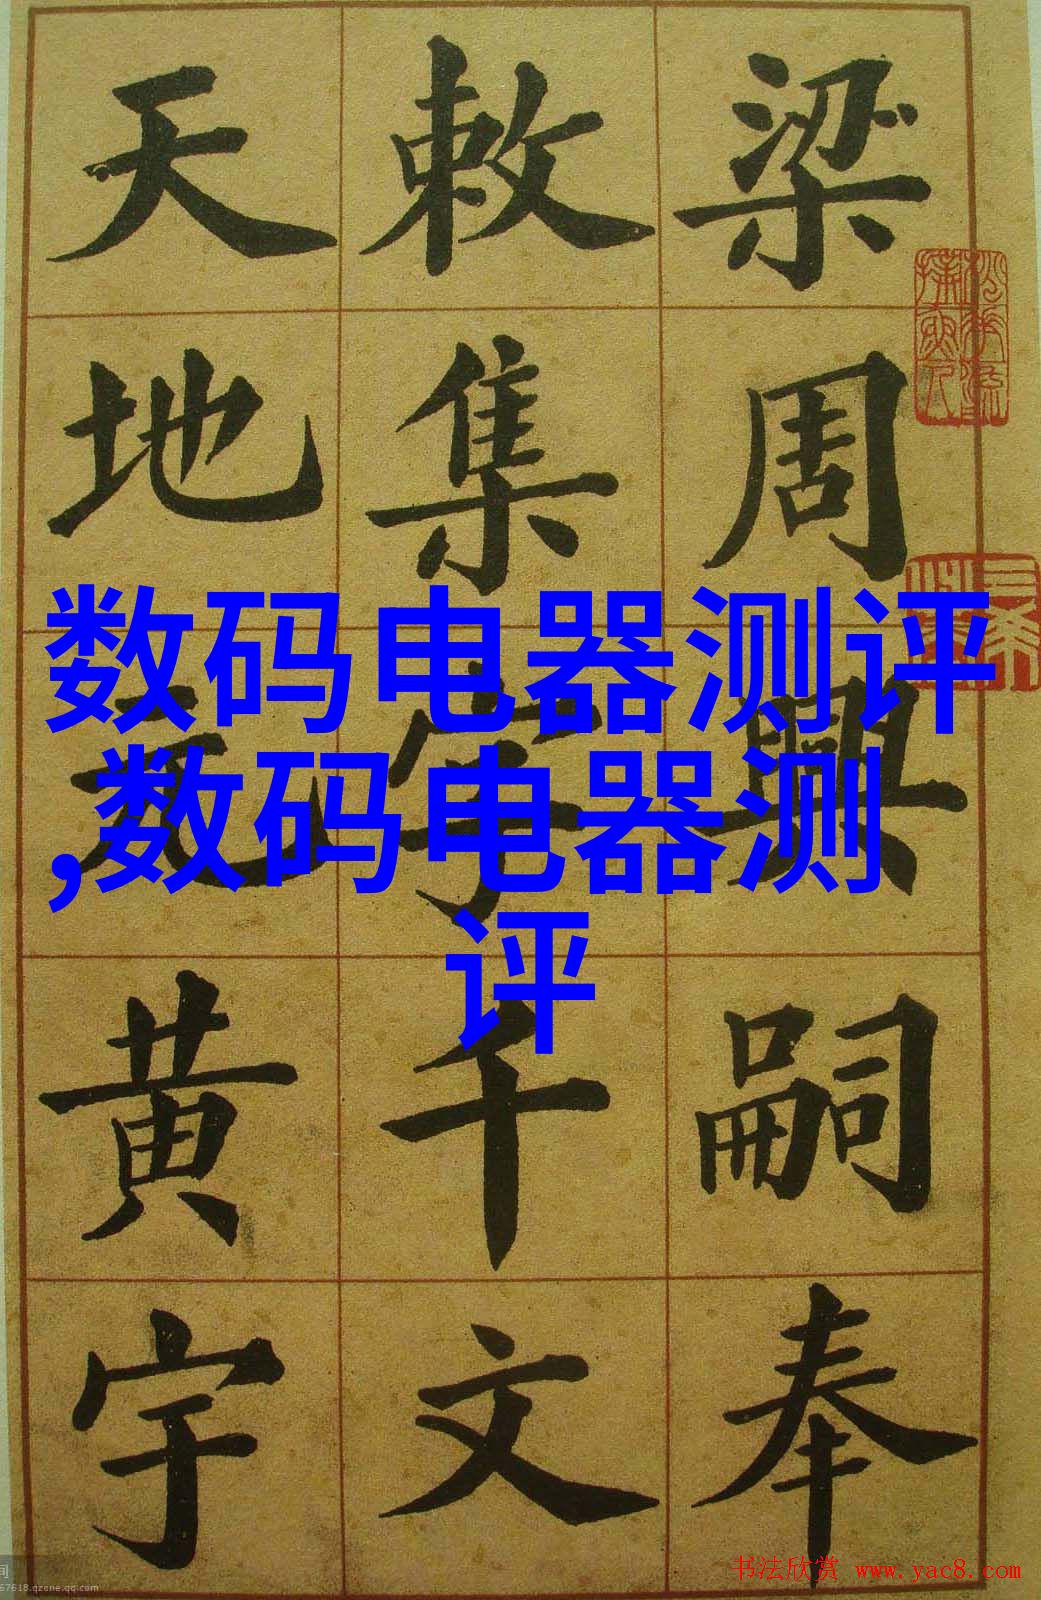 梁周興嗣奉
敕集字千文
天地元黄宇
数码电器测评
,数码电器测
评
书法欣赏 www.yac8.com
67618.qzone.qq.com